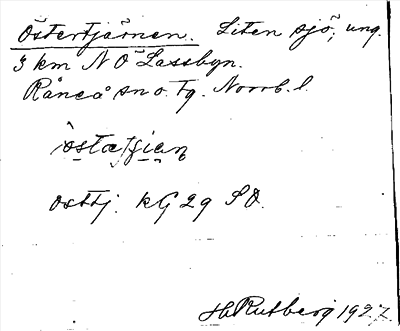 Östertjärnen. Liten sjö, ung.
3 km NÖ Lassbyn.
Råneå sn o. tg. Norrb. l.
östtj. kG 29 SO.
H. Rutberg 1927.